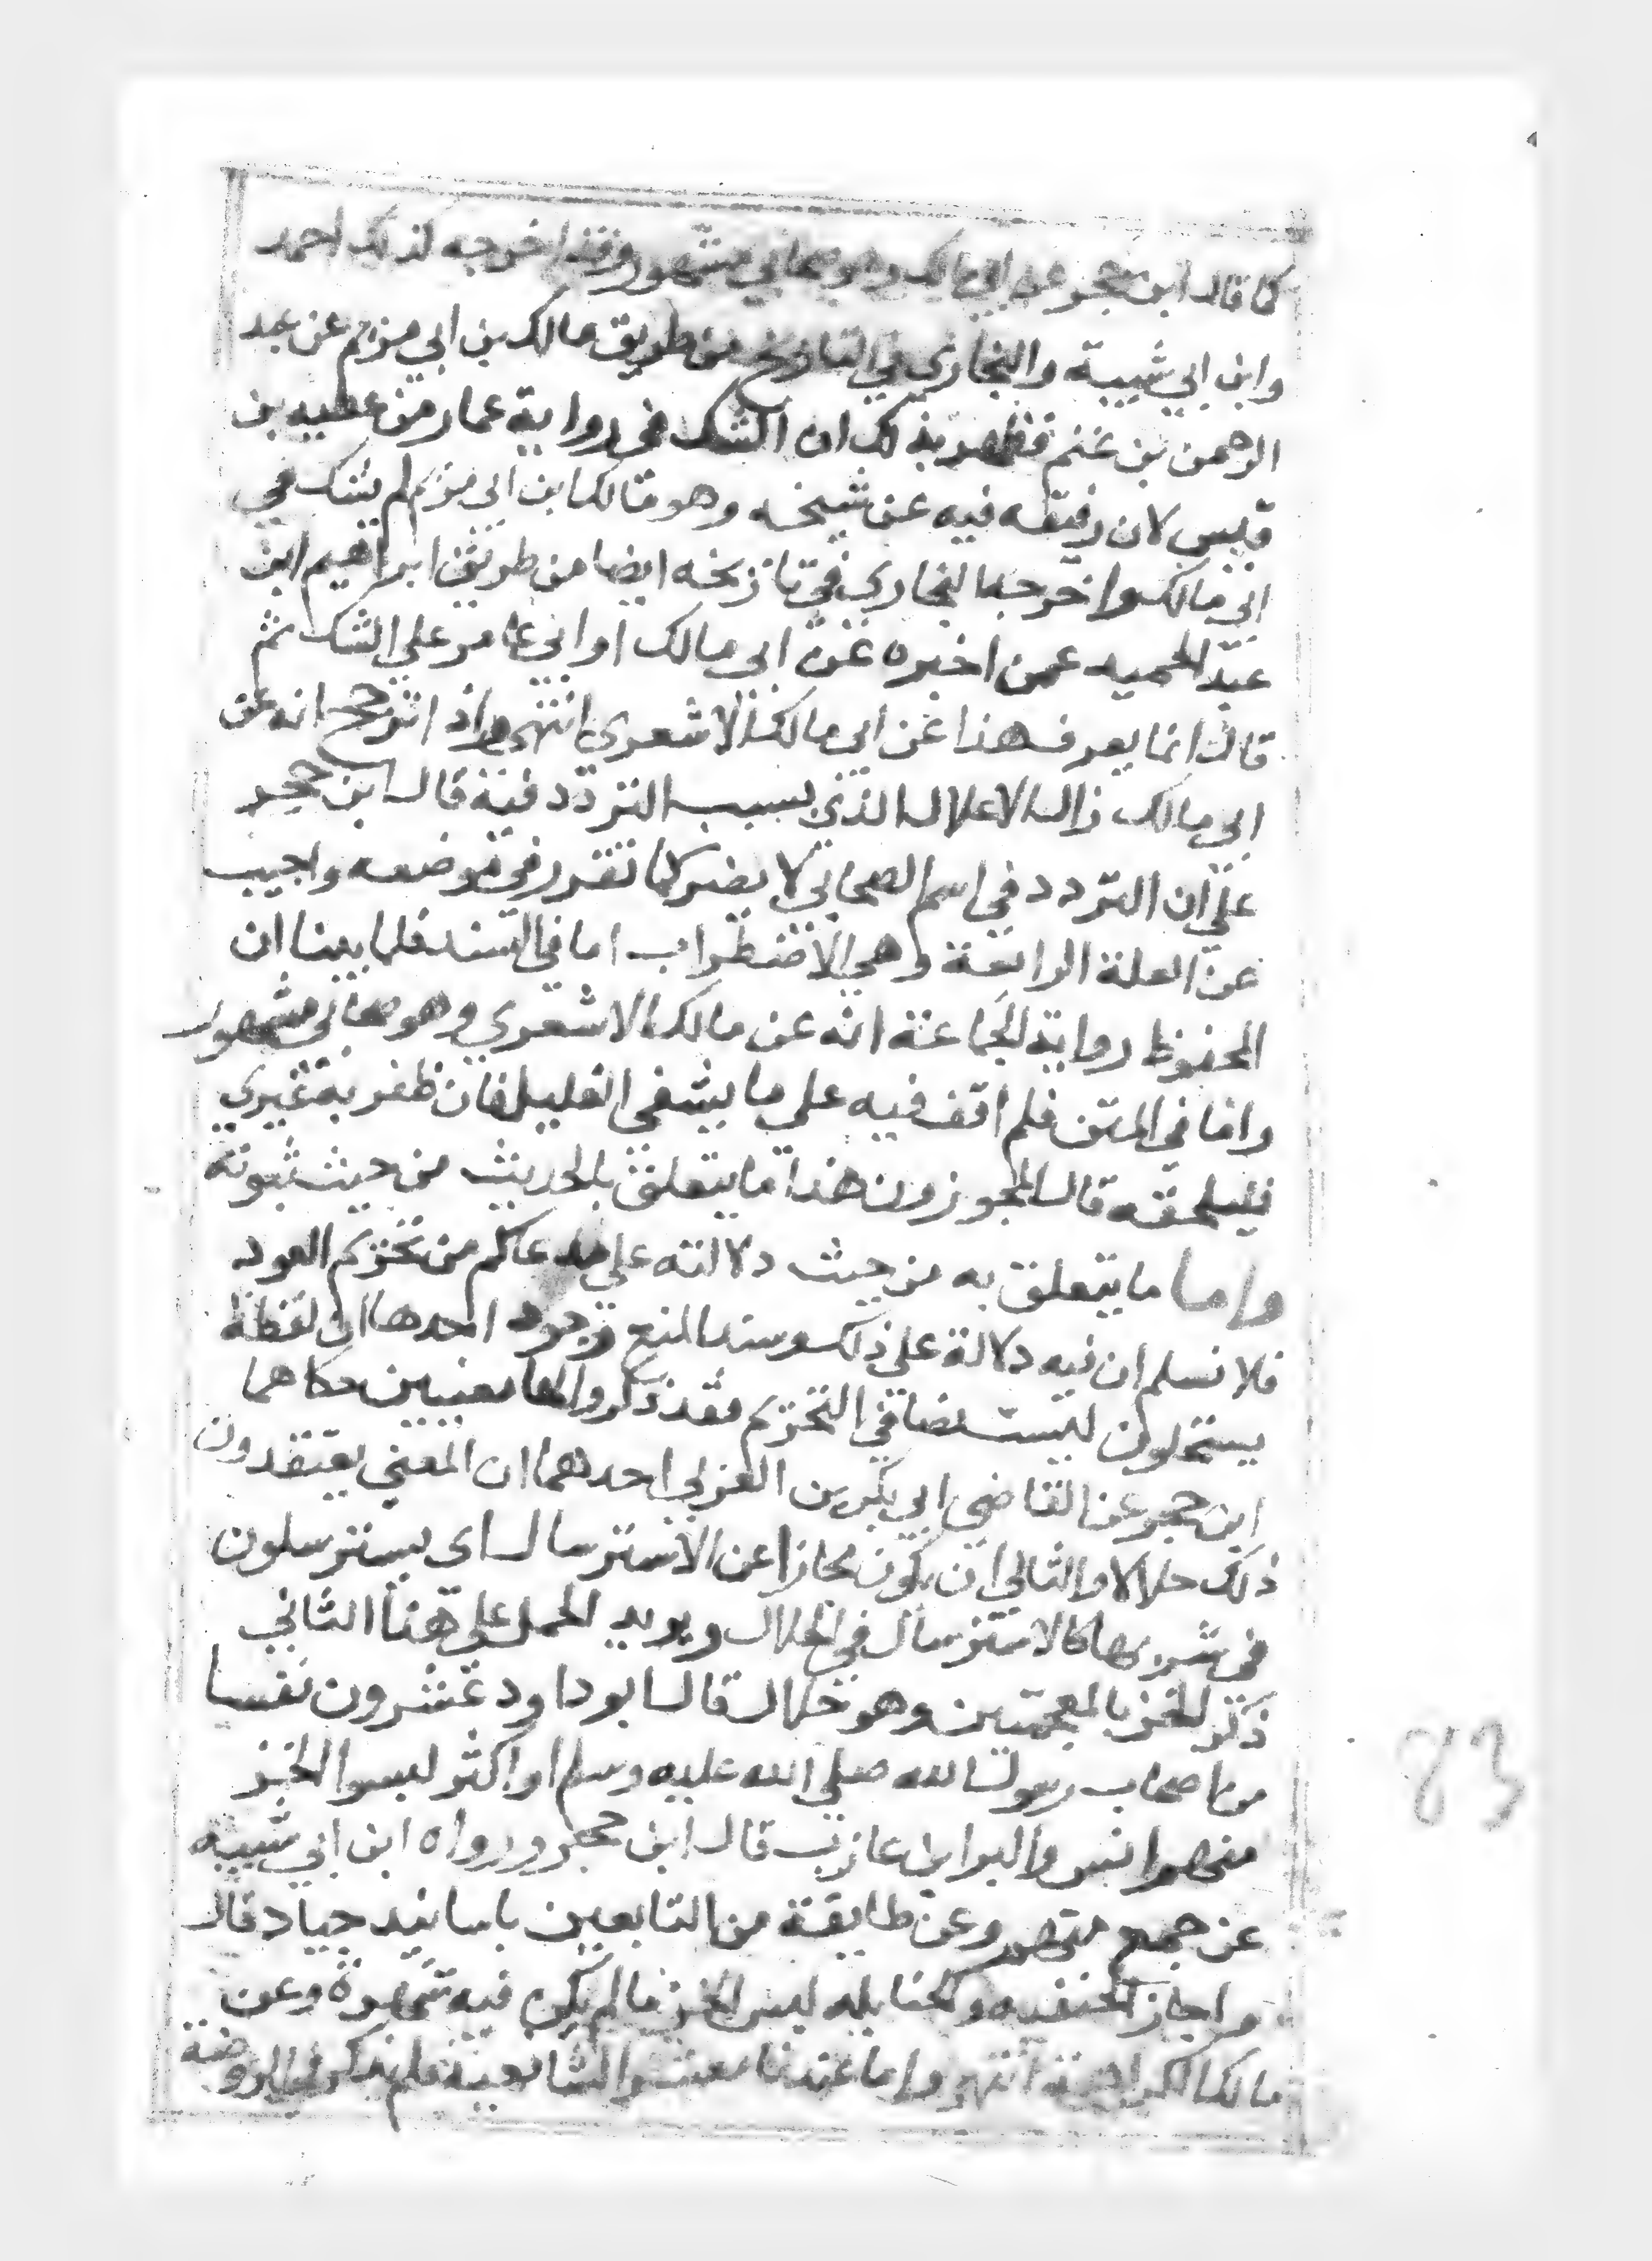 كما قال ابن حجر عن ابي مالك وهو صحابي مشهور وقد اخرجه كذلك احمد
وابن ابي شيبة والبخاري في التاريخ من طريق مالك بن ابي مريم عن عبد
الرحمن بن غنم فظهر بذلك ان الشك في رواية عمار من عطيه بن
قيس لان رفيقه فيه عن شيخه وهو مالك بن ابي مريم لم يشك في
ابي مالك واخرجه البخاري في تاريخه ايضا من طريق ابراهيم ابن
عبد الحميد عمن اخبره عن ابي مالك او ابي عامر على الشك ثم
قال انما يعرف هذا عن ابي مالك الاشعري انتهى واذ اترجح انه عن
ابي مالك زال الاعلال الذي بسبب التردد فيه قال ابن حجر
على ان التردد في اسم الصحابي لا يضر كما تقرر في موضعه واجيب
عن العلة الرابعة وهي الاضطراب اما في السند فلما بينا ان
المحفوظ رواية الجماعة انه عن مالك الاشعري وهو صحابي مشهور
واما في المتن فلم اقف فيه على ما يشفي الغليل فان ظفر به غيري
فليلحقه قال المجوزون هذا ما يتعلق بالحديث من حيث ثبوته
واما ما يتعلق به من حيث دلالته على مدعاكم من تحريم العود
فلا نسلم ان فيه دلالة على ذلك وسند المنع وجوه احدها ان لفظة
يستحلون ليست نصا في التحريم فقد ذكروا لها معنيين حكاهما
ابن حجر عن القاضي ابي بكر بن العربي احدهما ان المعني يعتقدون
ذلك حلالا والثاني ان يكون مجازا عن الاسترسال اى يسترسلون
في شربها كالاسترسال في الحلال ويويد الحمل على هذا الثاني
ذكر الخز بالمعجمتين وهو حلال قال ابو داود عشرون نفسا
من اصحاب رسول الله صلى الله عليه وسلم او اكثر لبسوا الخز
منهم انس والبرا بن عازب قال ابن حجر ورواه ابن ابي شيبه
عن جمع منهم وعن طايفة من التابعين باسانيد جياد قال
واجاز الحنفيه والحنابله لبس الخز ما لم يكن فيه شهرة وعن
مالك الكراهية انتهى واما عندنا معشر الشافعية فلم يذكر في الروضة
83